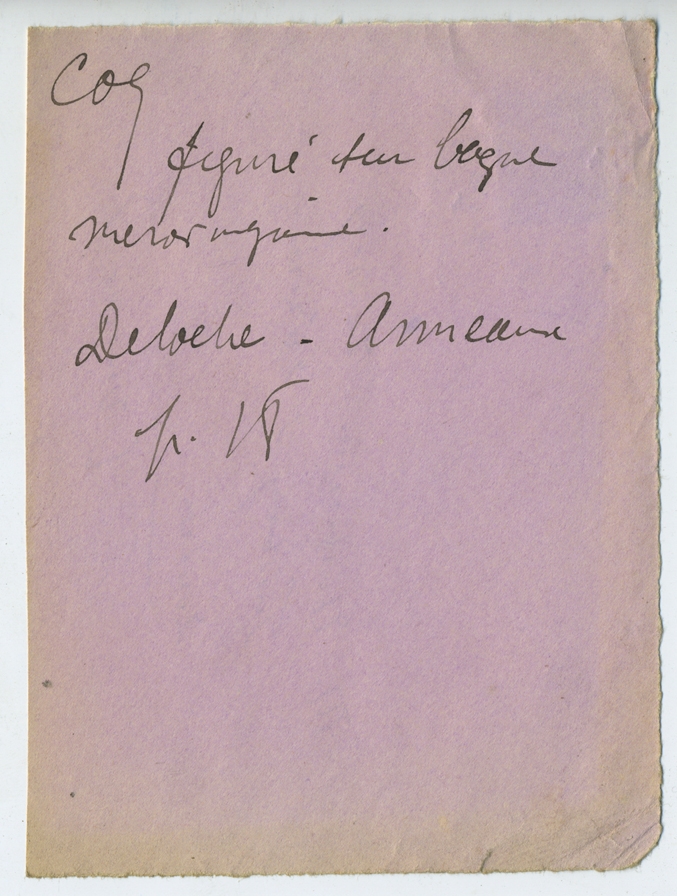 Coq
figuré sur bague
merovingienne.
Deloche - Anneaux
p. 18